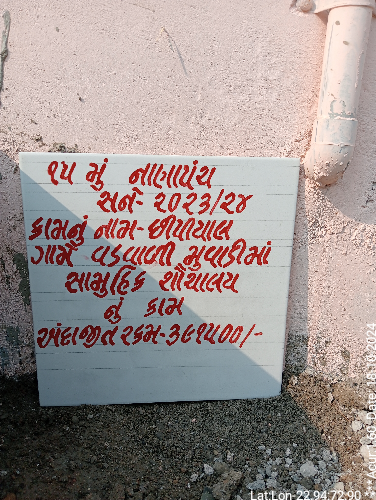 ૧૫ મું નાણાપંચ
સને- ૨૦૨૩/૨૪
કામનું નામ- છીપીયાલ
ગામે વડવાળી મુવાડીમાં
સામુહિક શૌચાલય
નું કામ
અંદાજીત રકમ- ૩૯૧૫૦૦/-
Lat:Lon- 22.94,72.90